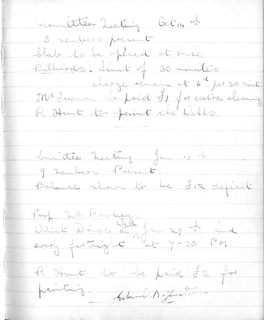 Committee Meeting Oct 14th
5 members present
Club to be opened at once
Billiards. Limit of 30 minutes
charge remain at 6d per 30 mins
Mr to be paid £1 for extra cleaning
R Hunt to paint the Walls.
Committee Meeting Jan
9 members Present.
Balance shown to be £12 deficit
Prop. Mr
Whist Drive on Wed Jan 29th and
every fortnight at 7-30 PM.
R Hunt to be paid £2 for
painting.